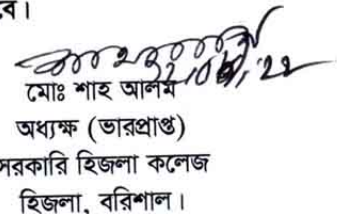 বে।
মোঃ শাহ আলম
অধ্যক্ষ (ভারপ্রাপ্ত)
সরকারি হিজলা কলেজ
হিজলা, বরিশাল।